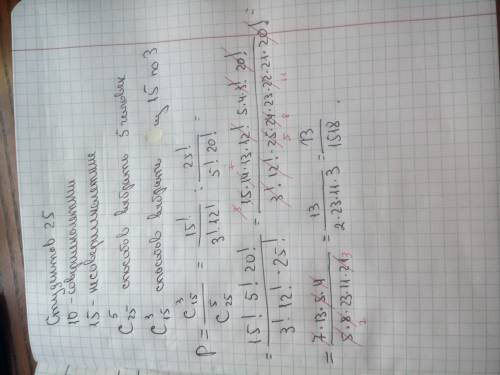 Студентов 25
10 - совершеннолетних
15 - несовершеннолетние
C₂₅⁵ способов выбрать 5 человек
C₁₅³ способов выбрать из 15 по 3
P = C₁₅³ / C₂₅⁵ = 15! / (3! 12!) : 25! / (5! 20!) =
= 15! 5! 20! / (3! 12! · 25!) = 15·14·13·12! · 5·4·3! 20! / (3! · 12! · 25·24·23·22·21·20!) =
= 7·13·5·4 / (5·8·23·11·21) = 13 / (2·23·11·3) = 13 / 1518 .